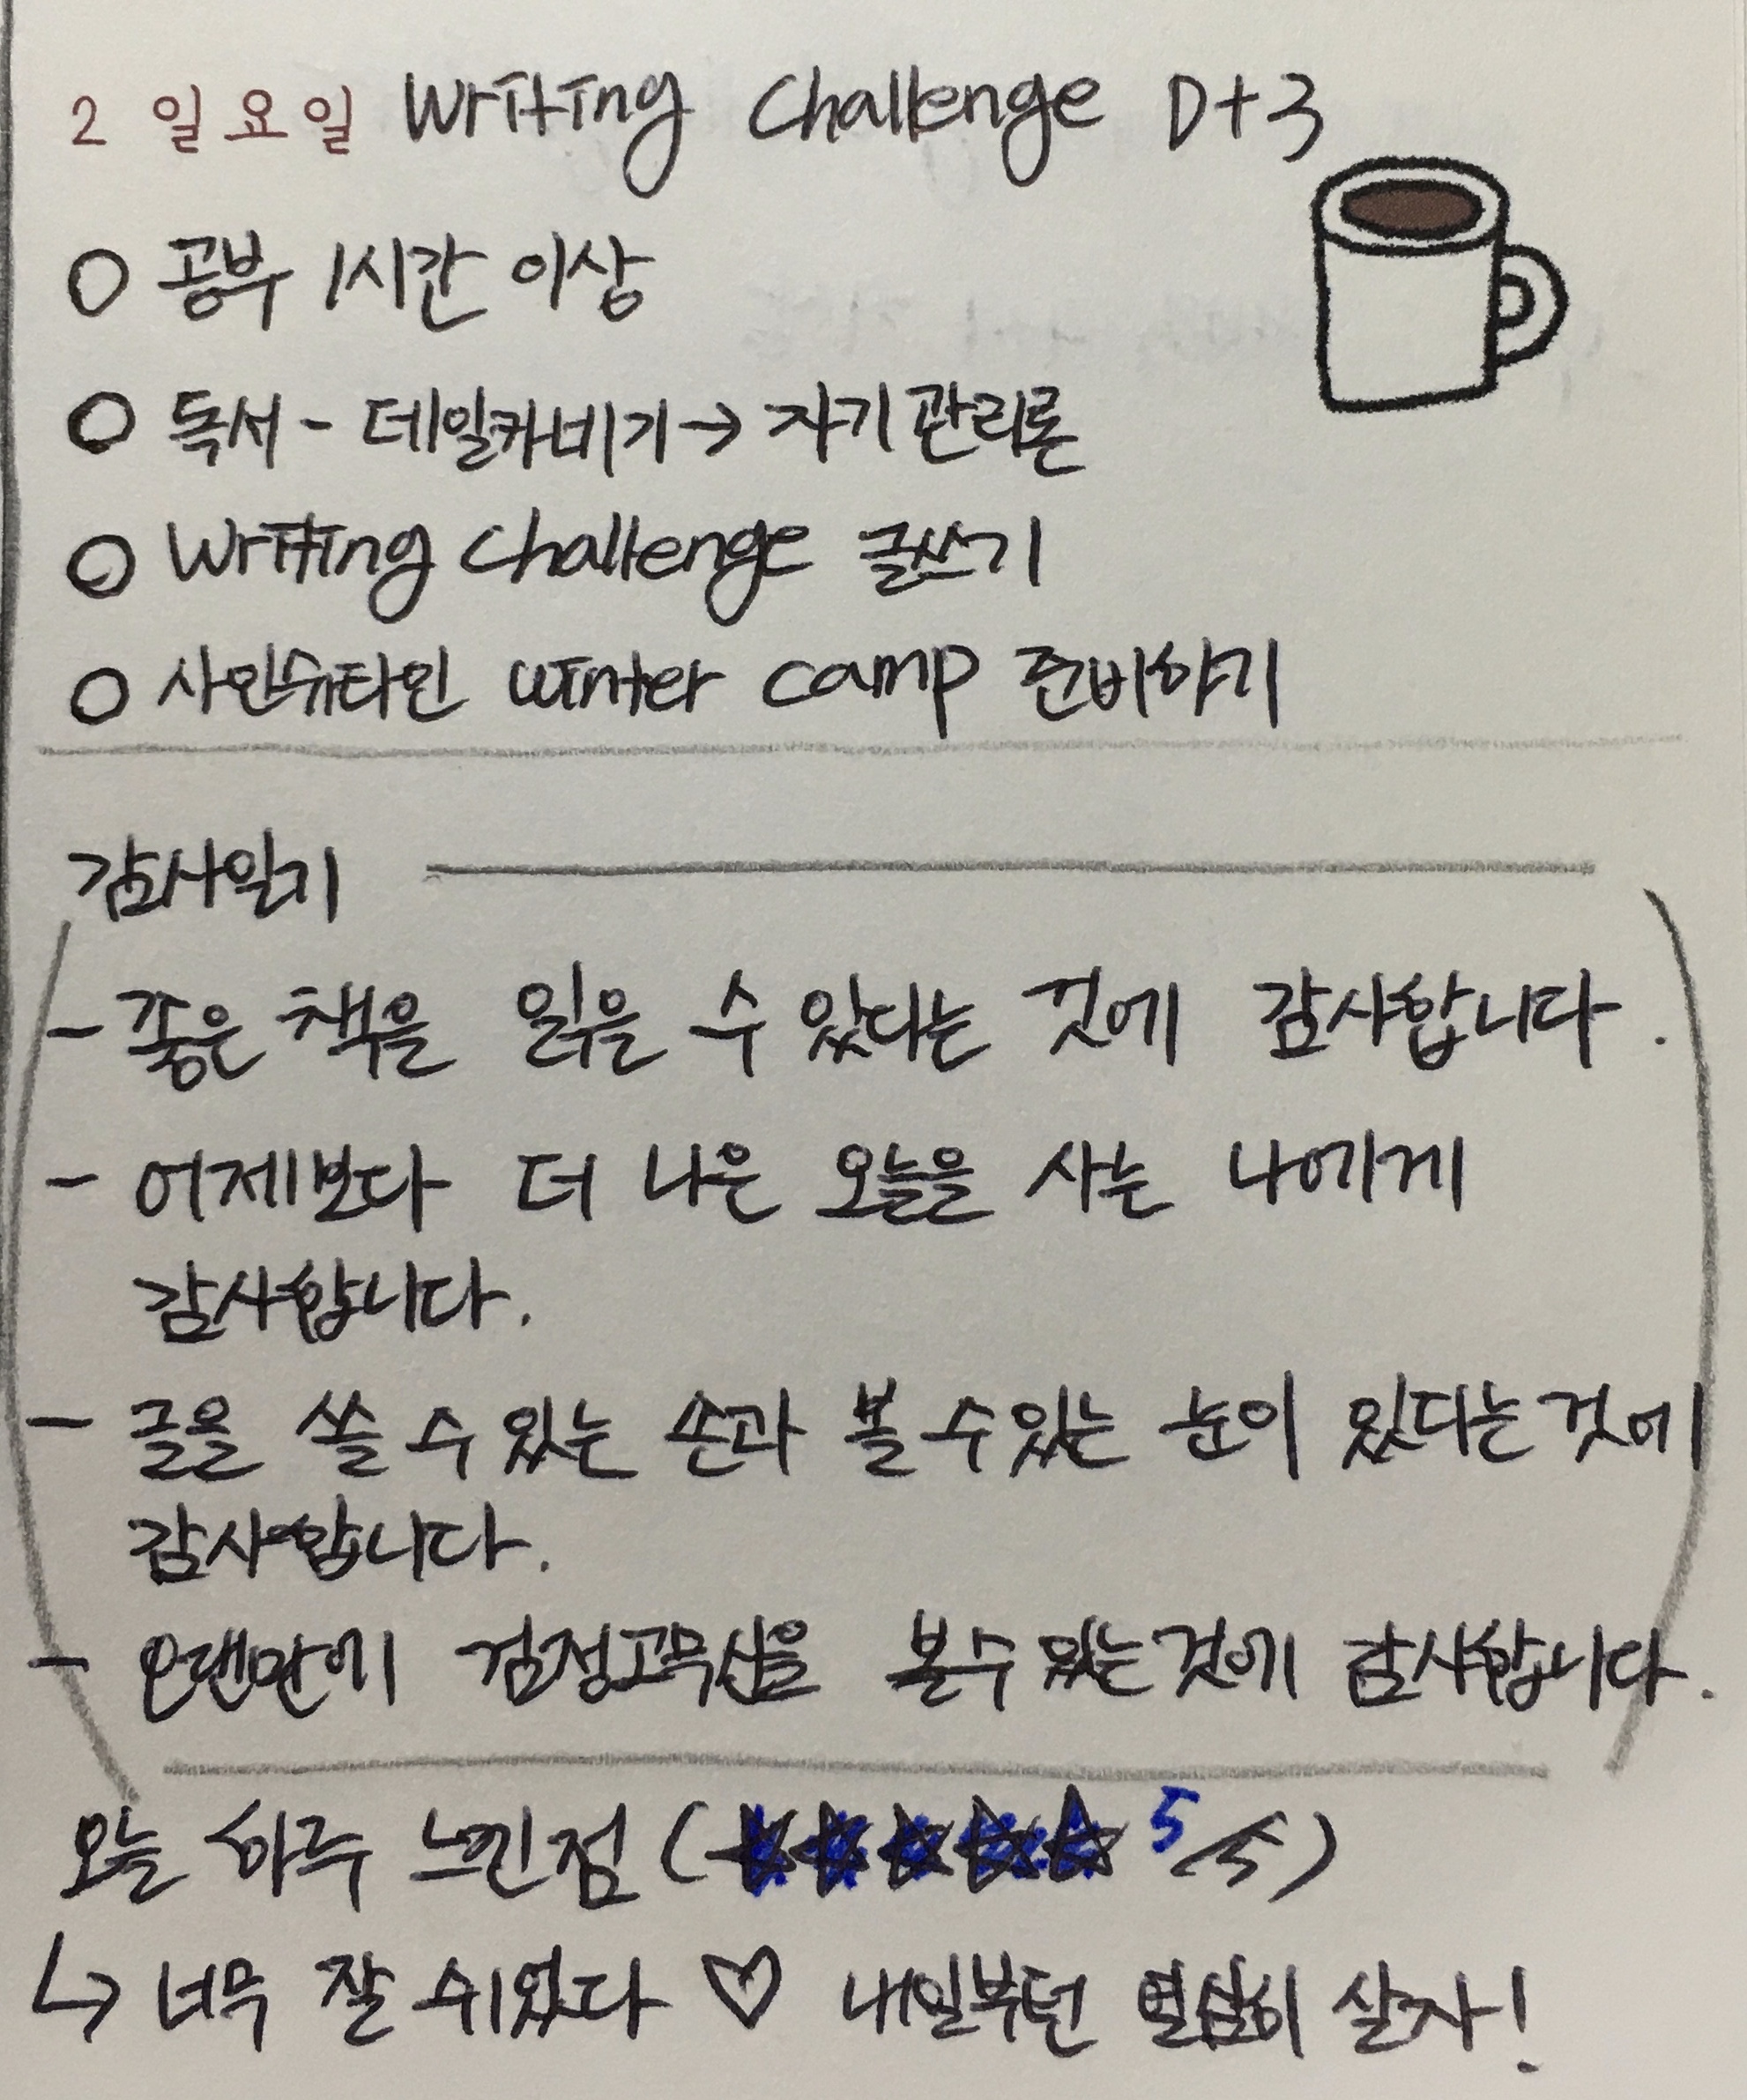 2 일요일 Writing Challenge D+3
○ 공부 1시간 이상
○ 독서 - 데일카네기 → 자기관리론
○ Writing Challenge 글쓰기
○ 사인슈타인 winter camp 준비하기
감사일기
- 좋은 책을 읽을 수 있다는 것에 감사합니다.
- 어제보다 더 나은 오늘을 사는 나에게
감사합니다.
- 글을 쓸 수 있는 손과 볼 수 있는 눈이 있다는 것에
감사합니다.
- 오랜만에 검정고무신을 볼수 있는것에 감사합니다.
오늘 하루 느낀점 (★★★★★ 5/5)
↳ 너무 잘 쉬었다 ♡ 내일부턴 열심히 살자!